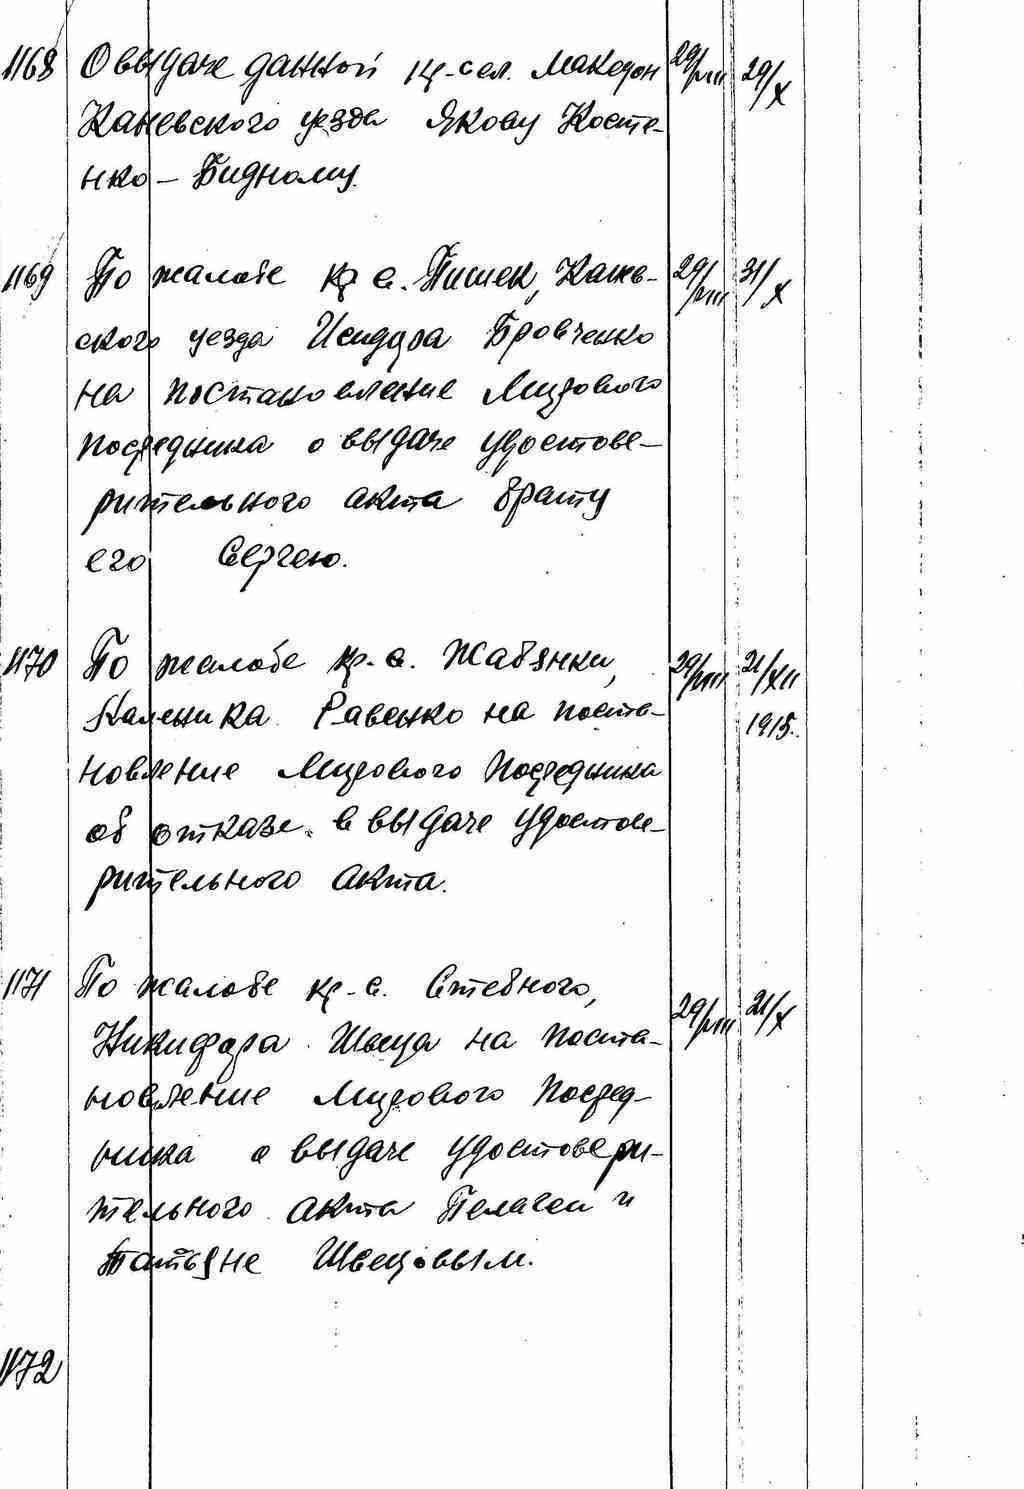 1168 О выдаче данной кр-сел. Македон 29/VIII 29/X
Каневского уезда Якову Косте-
нко – Бидному.
1169 По жалобе кр с. Пишек, Канев- 29/VIII 31/X
ского уезда Исидора Бровченко
на постановление Мирового
Посредника о выдаче удостове-
рительного акта брату
его Сергею.
1170 По жалобе кр-с. Жабянки, 29/VIII 21/XII
Каленика Равенко на поста- 1915.
новление Мирового Посредника
об отказе в выдаче удостове-
рительного акта.
1171 По жалобе кр-с. Стебного, 29/VIII 21/X
Никифора Швеца на поста-
новление Мирового Посред-
ника о выдаче удостовери-
тельного акта Пелагеи и
Татьяне Швецовым.
1172